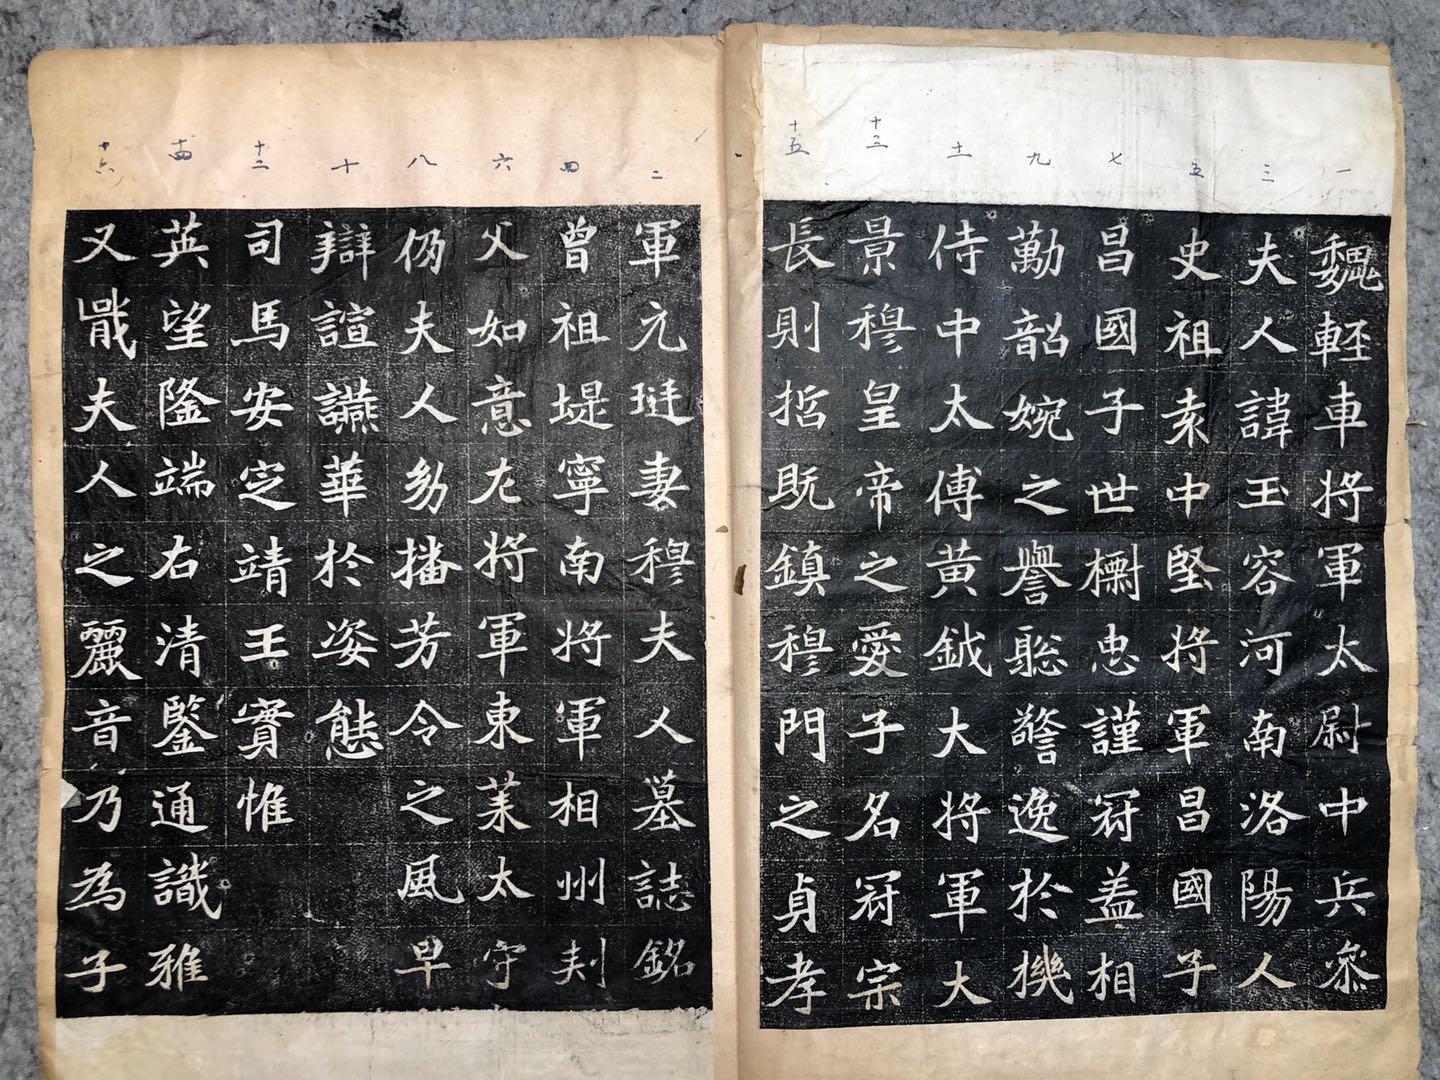 一
魏輕車將軍太尉中兵叅
二
軍元珽妻穆夫人墓誌銘
三
夫人諱玉容河南洛陽人
四
曾祖堤寧南將軍相州刾
五
史祖袁中堅將軍昌國子
六
父如意左將軍東萊太守
七
昌國子世櫥忠謹冠盖相
八
仍夫人幼播芳令之風早
九
勤韶婉之譽聡警逸於機
十
辯諠讌華於姿態
十一
侍中太傅黃鉞大將軍大
十二
司馬安定靖王實惟
十三
景穆皇帝之愛子名冠宗
十四
英望隆端右清鑒通識雅
十五
長則哲既鎮穆門之貞孝
十六
又戢夫人之麗音乃為子